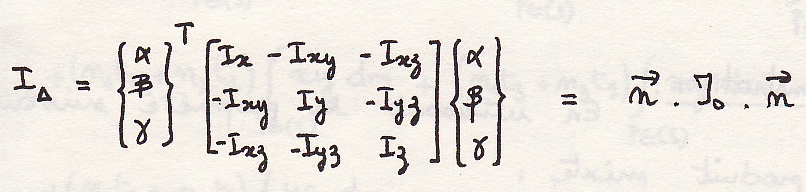 I_Δ = {α β γ}^T [I_x -I_xy -I_xz; -I_xy I_y -I_yz; -I_xz -I_yz I_z] {α β γ} = \vec{n} . J_0 . \vec{n}